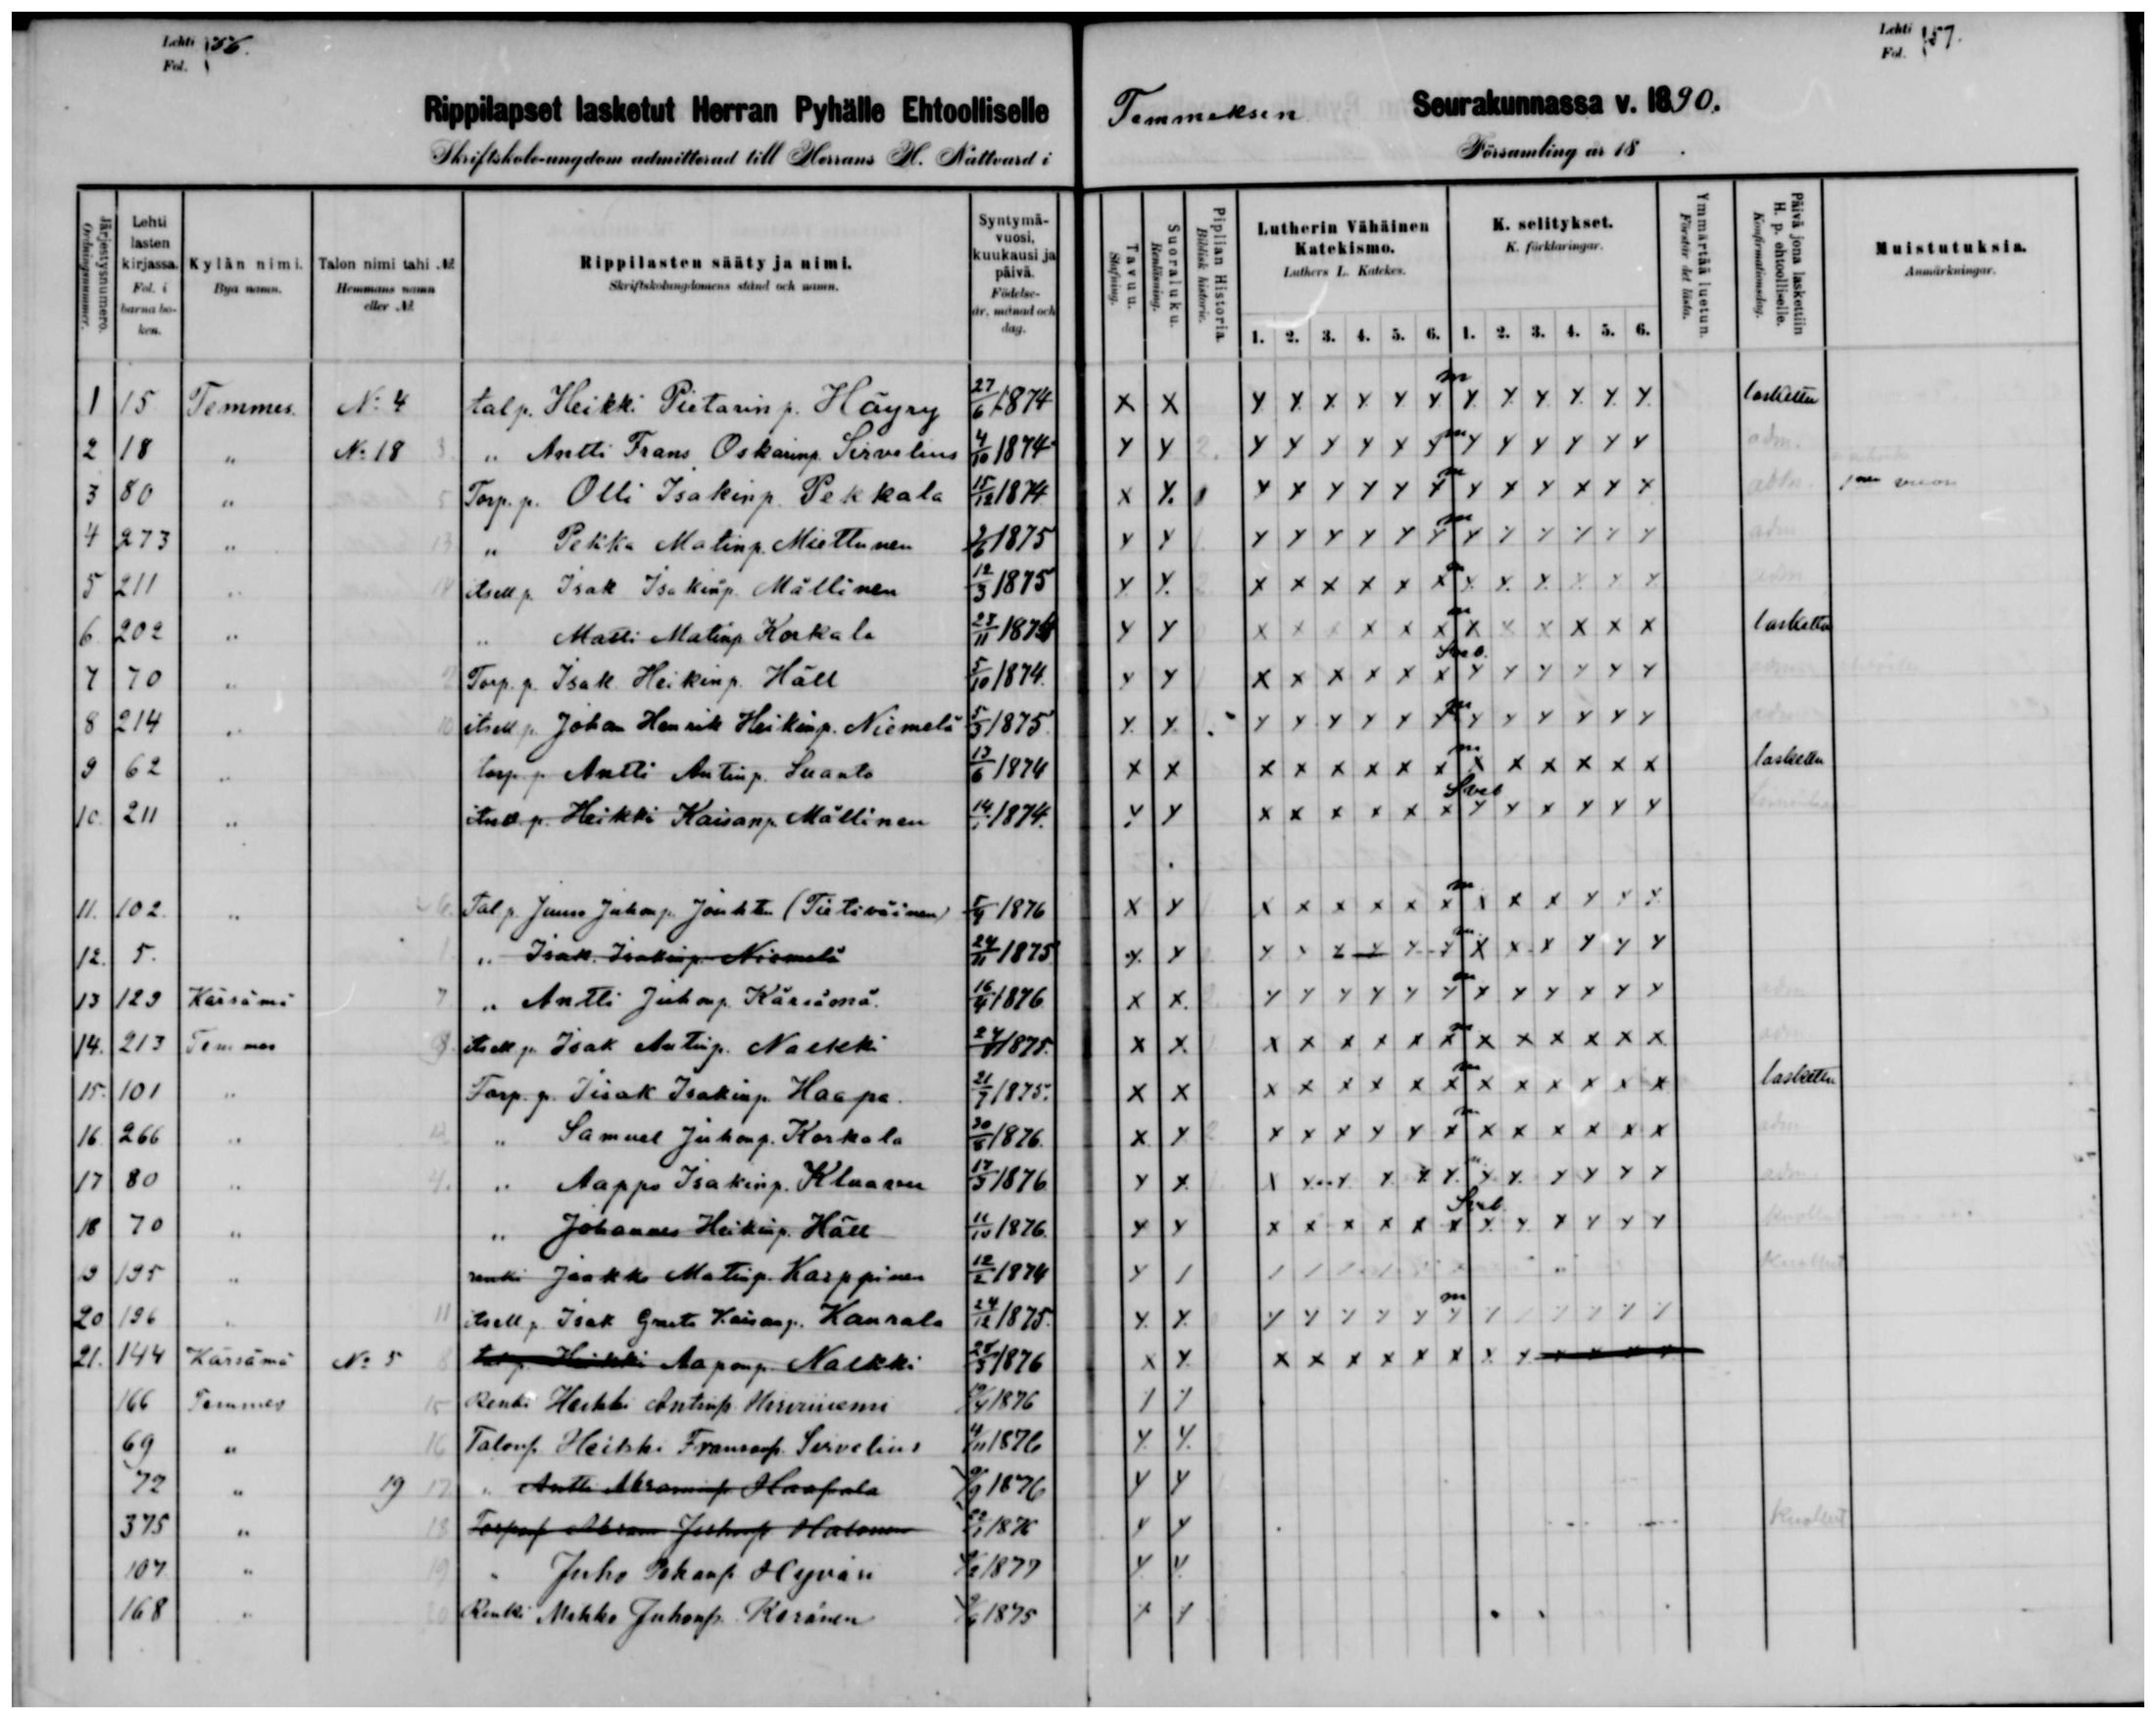 Lehti
Fol. 156.
Lehti
Fol. 157.
Rippilapset lasketut Herran Pyhälle Ehtoolliselle Temmeksen Seurakunnassa v. 1890.
Skriftskole-ungdom admitterad till Herrans H. Nattvard i Församling år 18 .
Järjestysnumero. Ordningsnummer.
Lehti lasten kirjassa. Fol. i barna boken.
Kylän nimi. Bya namn.
Talon nimi tahi №. Hemmans namn eller №.
Rippilasten sääty ja nimi. Skriftskolungdomens stånd och namn.
Syntymävuosi, kuukausi ja päivä. Födelseår, månad och dag.
Tavuu. Stafning.
Suoraluku. Renläsning.
Piplian Historia. Biblisk historie.
Lutherin Vähäinen Katekismo. Luthers L. Katekes.
K. selitykset. K. förklaringar.
Ymmärtää luetun. Förstår det lästa.
Päivä jona laskettiin H. p. ehtoolliselle. Konfirmationsdag.
Muistutuksia. Anmärkningar.
1. 2. 3. 4. 5. 6. 1. 2. 3. 4. 5. 6.
1 15 Temmes. №: 4 talp. Heikki Pietarin p. Häyry 27/6 1874 x x x x x x x x m x x x x x x laskettu
2 18 " №: 18 3. " Antti Frans Oskarinp. Sirvelius 4/10 1874 x x 2. x x x x x x m x x x x x x adm.
3 80 " 5 Torp. p. Olli Isakinp. Pekkala 15/12 1874 x x. x x x x x x m x x x x x x vuon
4 273 " 13 " Pekka Matinp. Miettunen 2/6 1875 x x 1. x x x x x x m x x x x x x adm
5 211 " 14 itsell p. Isak Isakinp. Mällinen 12/3 1875 x x 2 x x x x x x x x x x x x adm
6. 202 " " Matti Matinp. Korkala 23/11 187 x x x x x x x x m x x x x x x laskettu
7 70 " 2 Torp. p. Isak Heikinp. Häll 5/10 1874. x x x x x x x x x x x x x x
8 214 " 10 itsell p. Johan Henrik Heikinp. Niemelä 5/3 1875. x x x x x x x x m x x x x x x
9 62 " torp. p. Antti Antinp. Suanto 13/6 1874 x x x x x x x x m x x x x x x laskettu
10. 211 " itsell. p. Heikki Kaisanp. Mällinen 14/1 1874. x x x x x x x x x x x x x x
11. 102. " 6. Tal p. Juuso Juhonp. (Tietäväinen) 5/9 1876 x x x x x x x x m x x x x x x
12. 5. " 1. " Isak. Isakinp. Niemelä 24/11 1875 x x x x x x x x m x x x x x x
13 129 Kärsämä 7. " Antti Juhonp. Kärsämä. 16/4 1876 x x. x x x x x x m x x x x x x adm
14. 213 Temmes 9. itsell p. Isak Antinp. Naekki 1875. x x x x x x x x m x x x x x x adm
15. 101 " Torp. p. Iisak Isakinp. Haapa. 21/7 1875. x x x x x x x x m x x x x x x laskettu
16. 266 " 12 " Samuel Juhonp. Korkala 30/8 1876. x x 2 x x x x x x m x x x x x x adm
17 80 " 4. " Aappo Isakinp. 17/3 1876 x x x x x x x x x x x x x x adm.
18 70 " " Johannes Heikinp. Häll 11/10 1876. x x x x x x x x x x x x x x
19 195 " renki Jaakko Matinp. Karppinen 12/2 1874 x /
20 196 " 11 itsell p. Isak Kaisanp. Kaurala 24/12 1875. x x x x x x x x m x x x x x x
21. 144 Kärsämä №: 5 8 tal p. Heikki Aaponp. Naekki 25/3 1876 x x x x x x x x x x x x x x
166 Temmes 15 Renki Heikki Antinp. Hirviniemi 1876 x x
69 " 16 Talonp. Heikki Fransonp. Sirvelius 4/11 1876 x x
72 " 19 17 " Antti Abraminp. Haapala 1876 x x
375 " 18 Torpanp. Abram Juhonp. Halonen 22/1 1876 x x
107 " 19 " Juho Pekanp. Hyväri 1877 x x
168 " 20 Renki Mikko Juhonp. Keränen 1875 x x